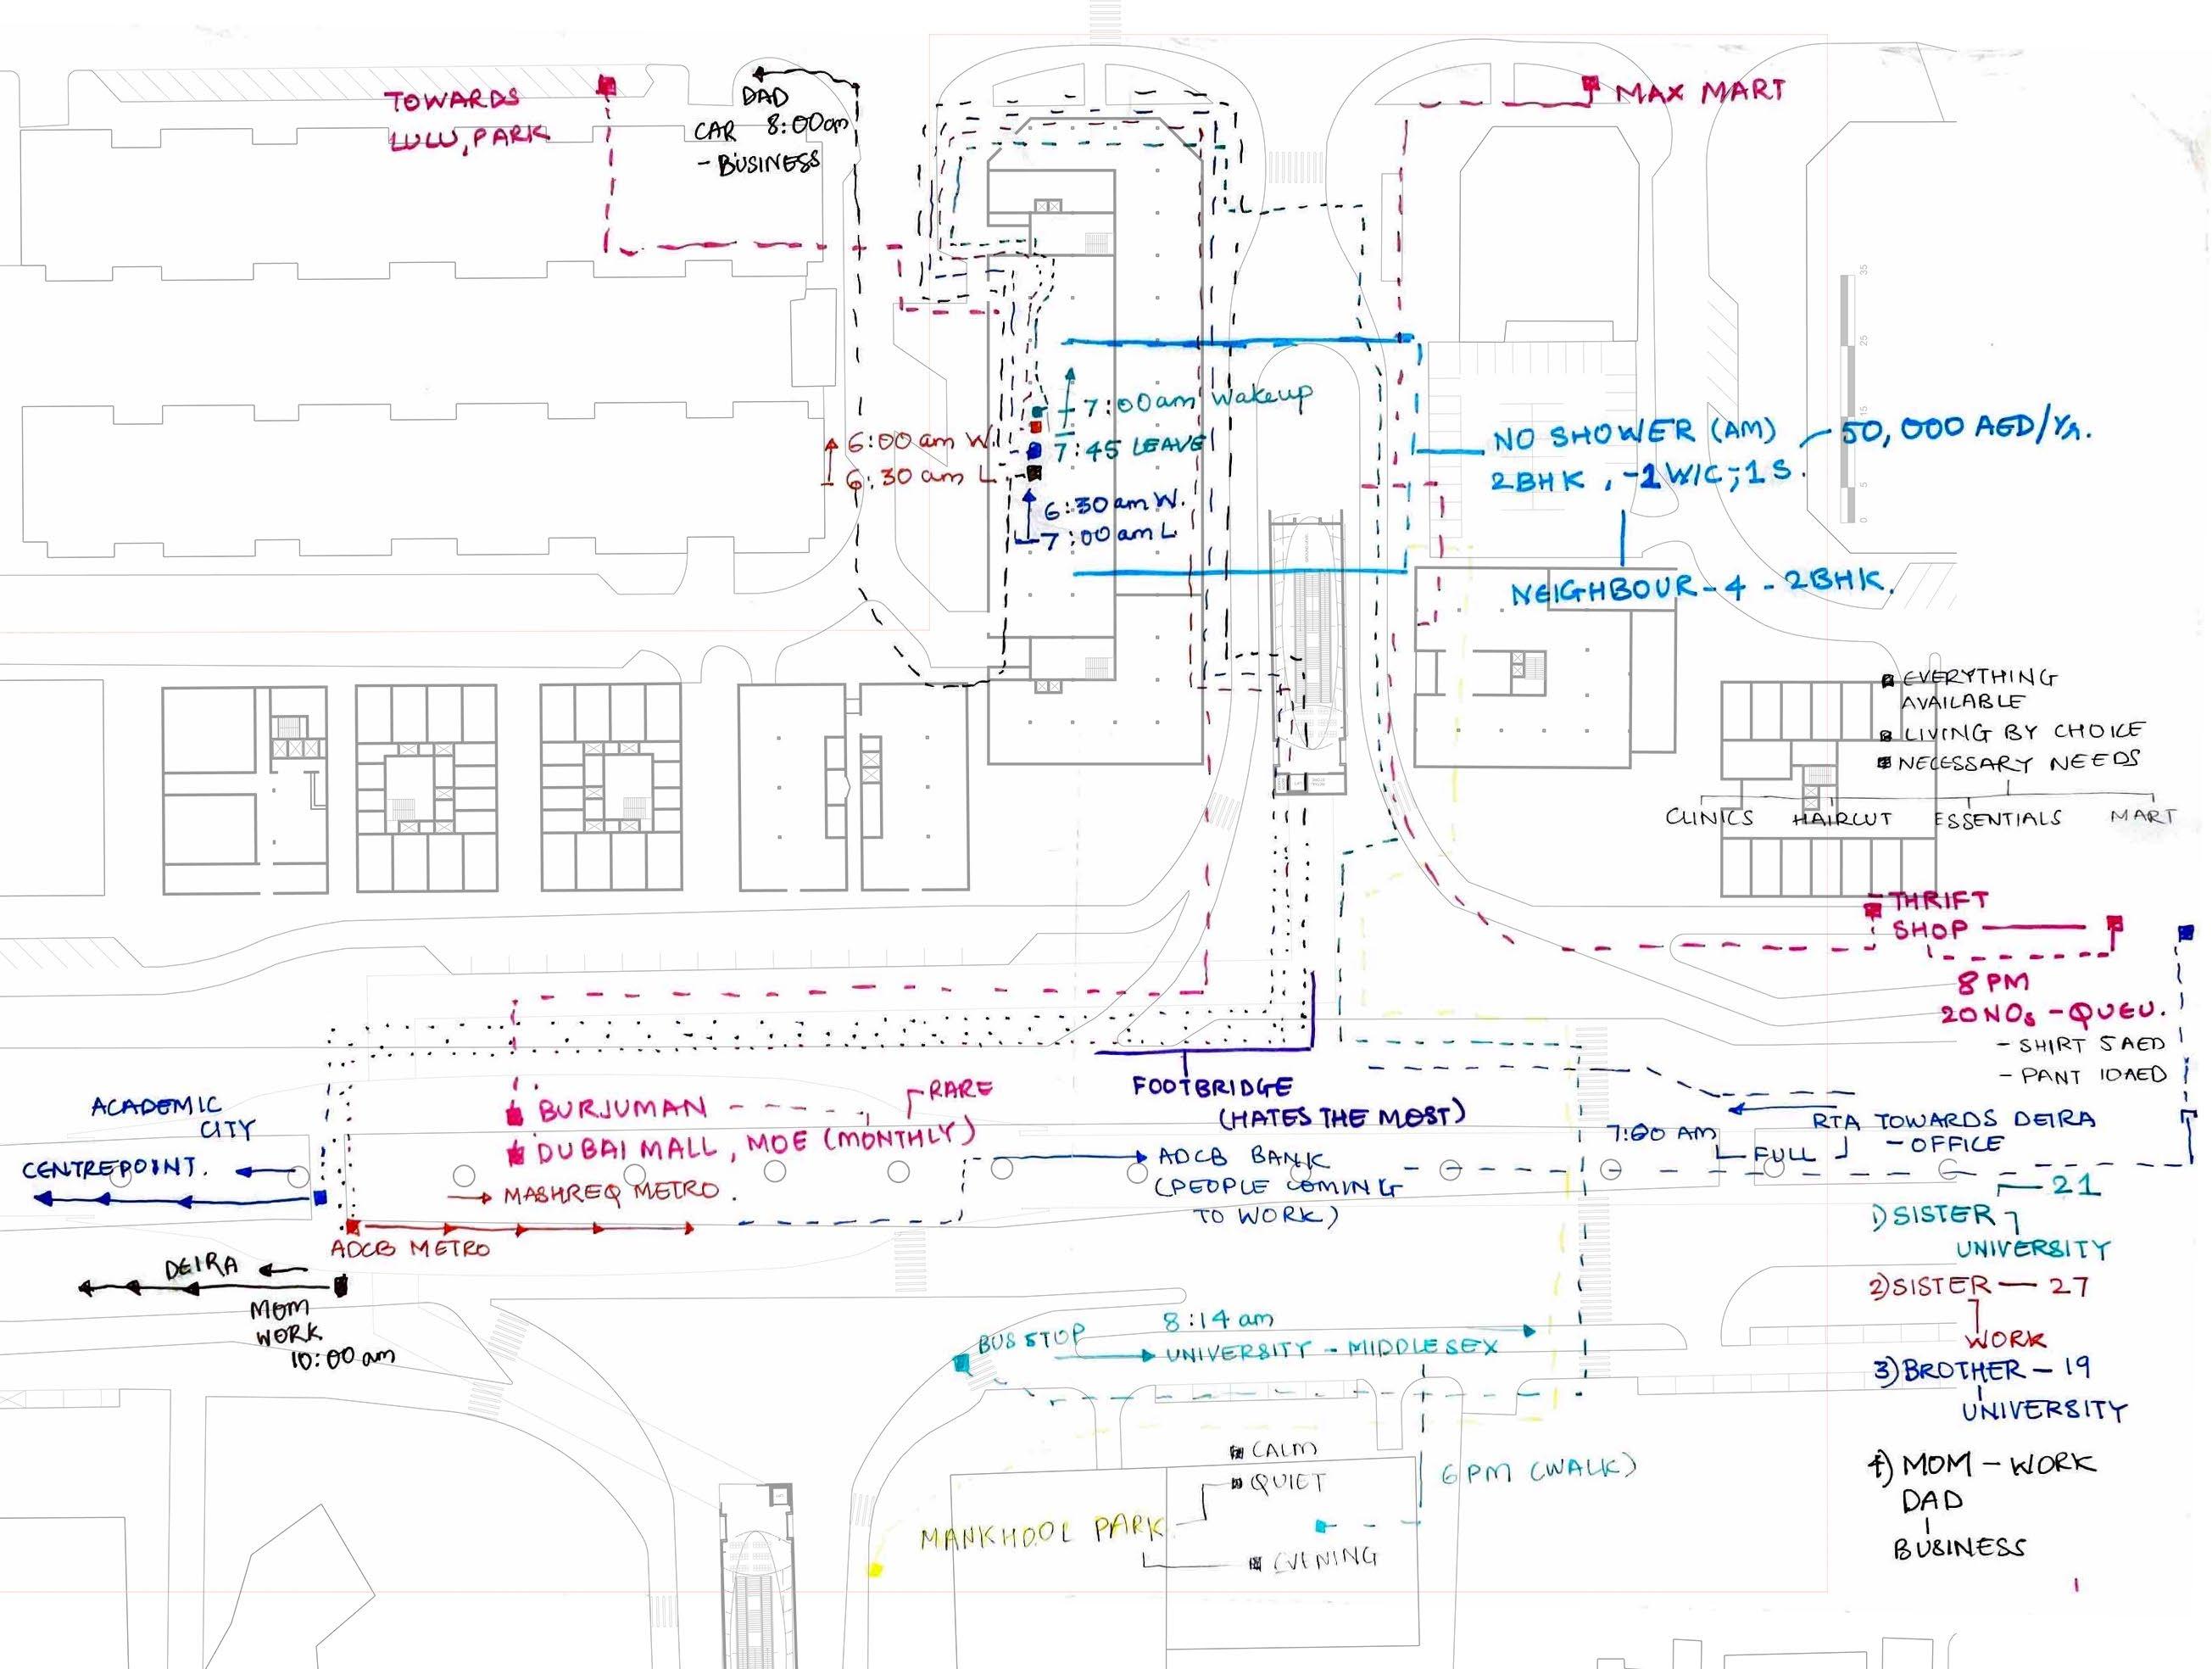 TOWARDS
LULU, PARK
DAD
CAR 8:00am
- BUSINESS
MAX MART
7:00am Wakeup
7:45 LEAVE
6:00 am W.
6:30 am L
6:30 am W.
7:00 am L
NO SHOWER (AM)
2BHK, -1 W/C; 1 S.
50,000 AED/Yr.
NEIGHBOUR - 4 - 2BHK.
35
25
15
5
0
EVERYTHING
AVAILABLE
LIVING BY CHOICE
NECESSARY NEEDS
CLINICS HAIRCUT ESSENTIALS MART
THRIFT
SHOP
8 PM
20 NOs - QUEU.
- SHIRT 5 AED
- PANT 10 AED
FOOTBRIDGE
(HATES THE MOST)
RARE
BURJUMAN
DUBAI MALL, MOE (MONTHLY)
ACADEMIC
CITY
CENTREPOINT.
MASHREQ METRO.
ADCB METRO
ADCB BANK
(PEOPLE COMING
TO WORK)
7:00 AM
FULL
RTA TOWARDS DEIRA
- OFFICE
DEIRA
MOM
WORK
10:00 am
BUS STOP
8:14 am
UNIVERSITY - MIDDLESEX
21
1) SISTER
UNIVERSITY
2) SISTER - 27
WORK
3) BROTHER - 19
UNIVERSITY
4) MOM - WORK
DAD
BUSINESS
CALM
QUIET
MANKHOOL PARK
EVENING
6 PM (WALK)